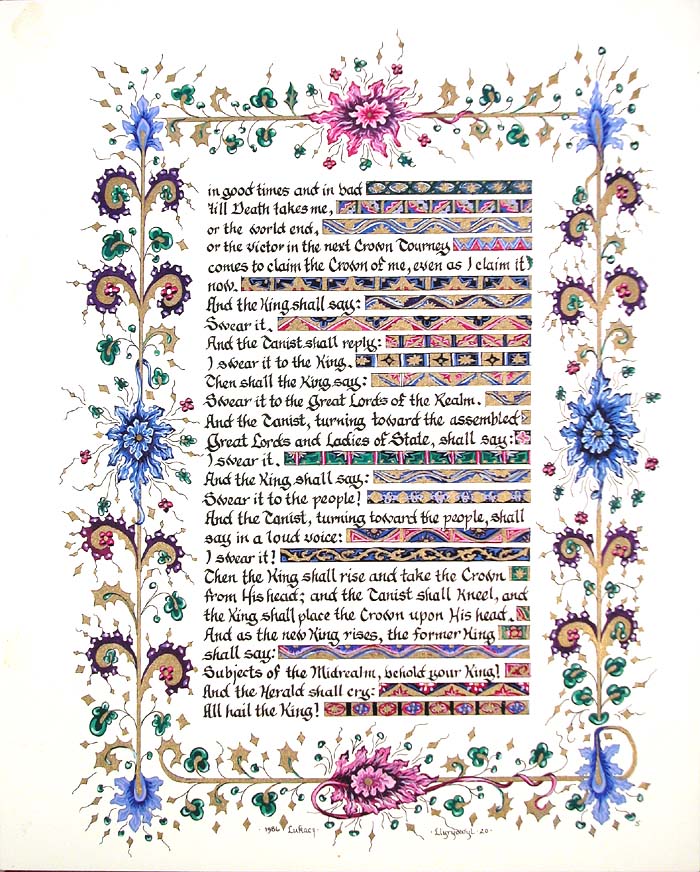 in good times and in bad
'till Death takes me,
or the world end,
or the victor in the next Crown Tourney
comes to claim the Crown of me, even as I claim it
now.
And the King shall say:
Swear it.
And the Tanist shall reply:
I swear it to the King.
Then shall the King say:
Swear it to the Great Lords of the Realm.
And the Tanist, turning toward the assembled
Great Lords and Ladies of State, shall say:
I swear it.
And the King shall say:
Swear it to the people!
And the Tanist, turning toward the people, shall
say in a loud voice:
I swear it!
Then the King shall rise and take the Crown
from His head; and the Tanist shall Kneel, and
the King shall place the Crown upon His head.
And as the new King rises, the former King
shall say:
Subjects of the Midrealm, behold your King!
And the Herald shall cry:
All hail the King!
· 1986 Lukacs · · Llyrydwyl · 20 ·
5